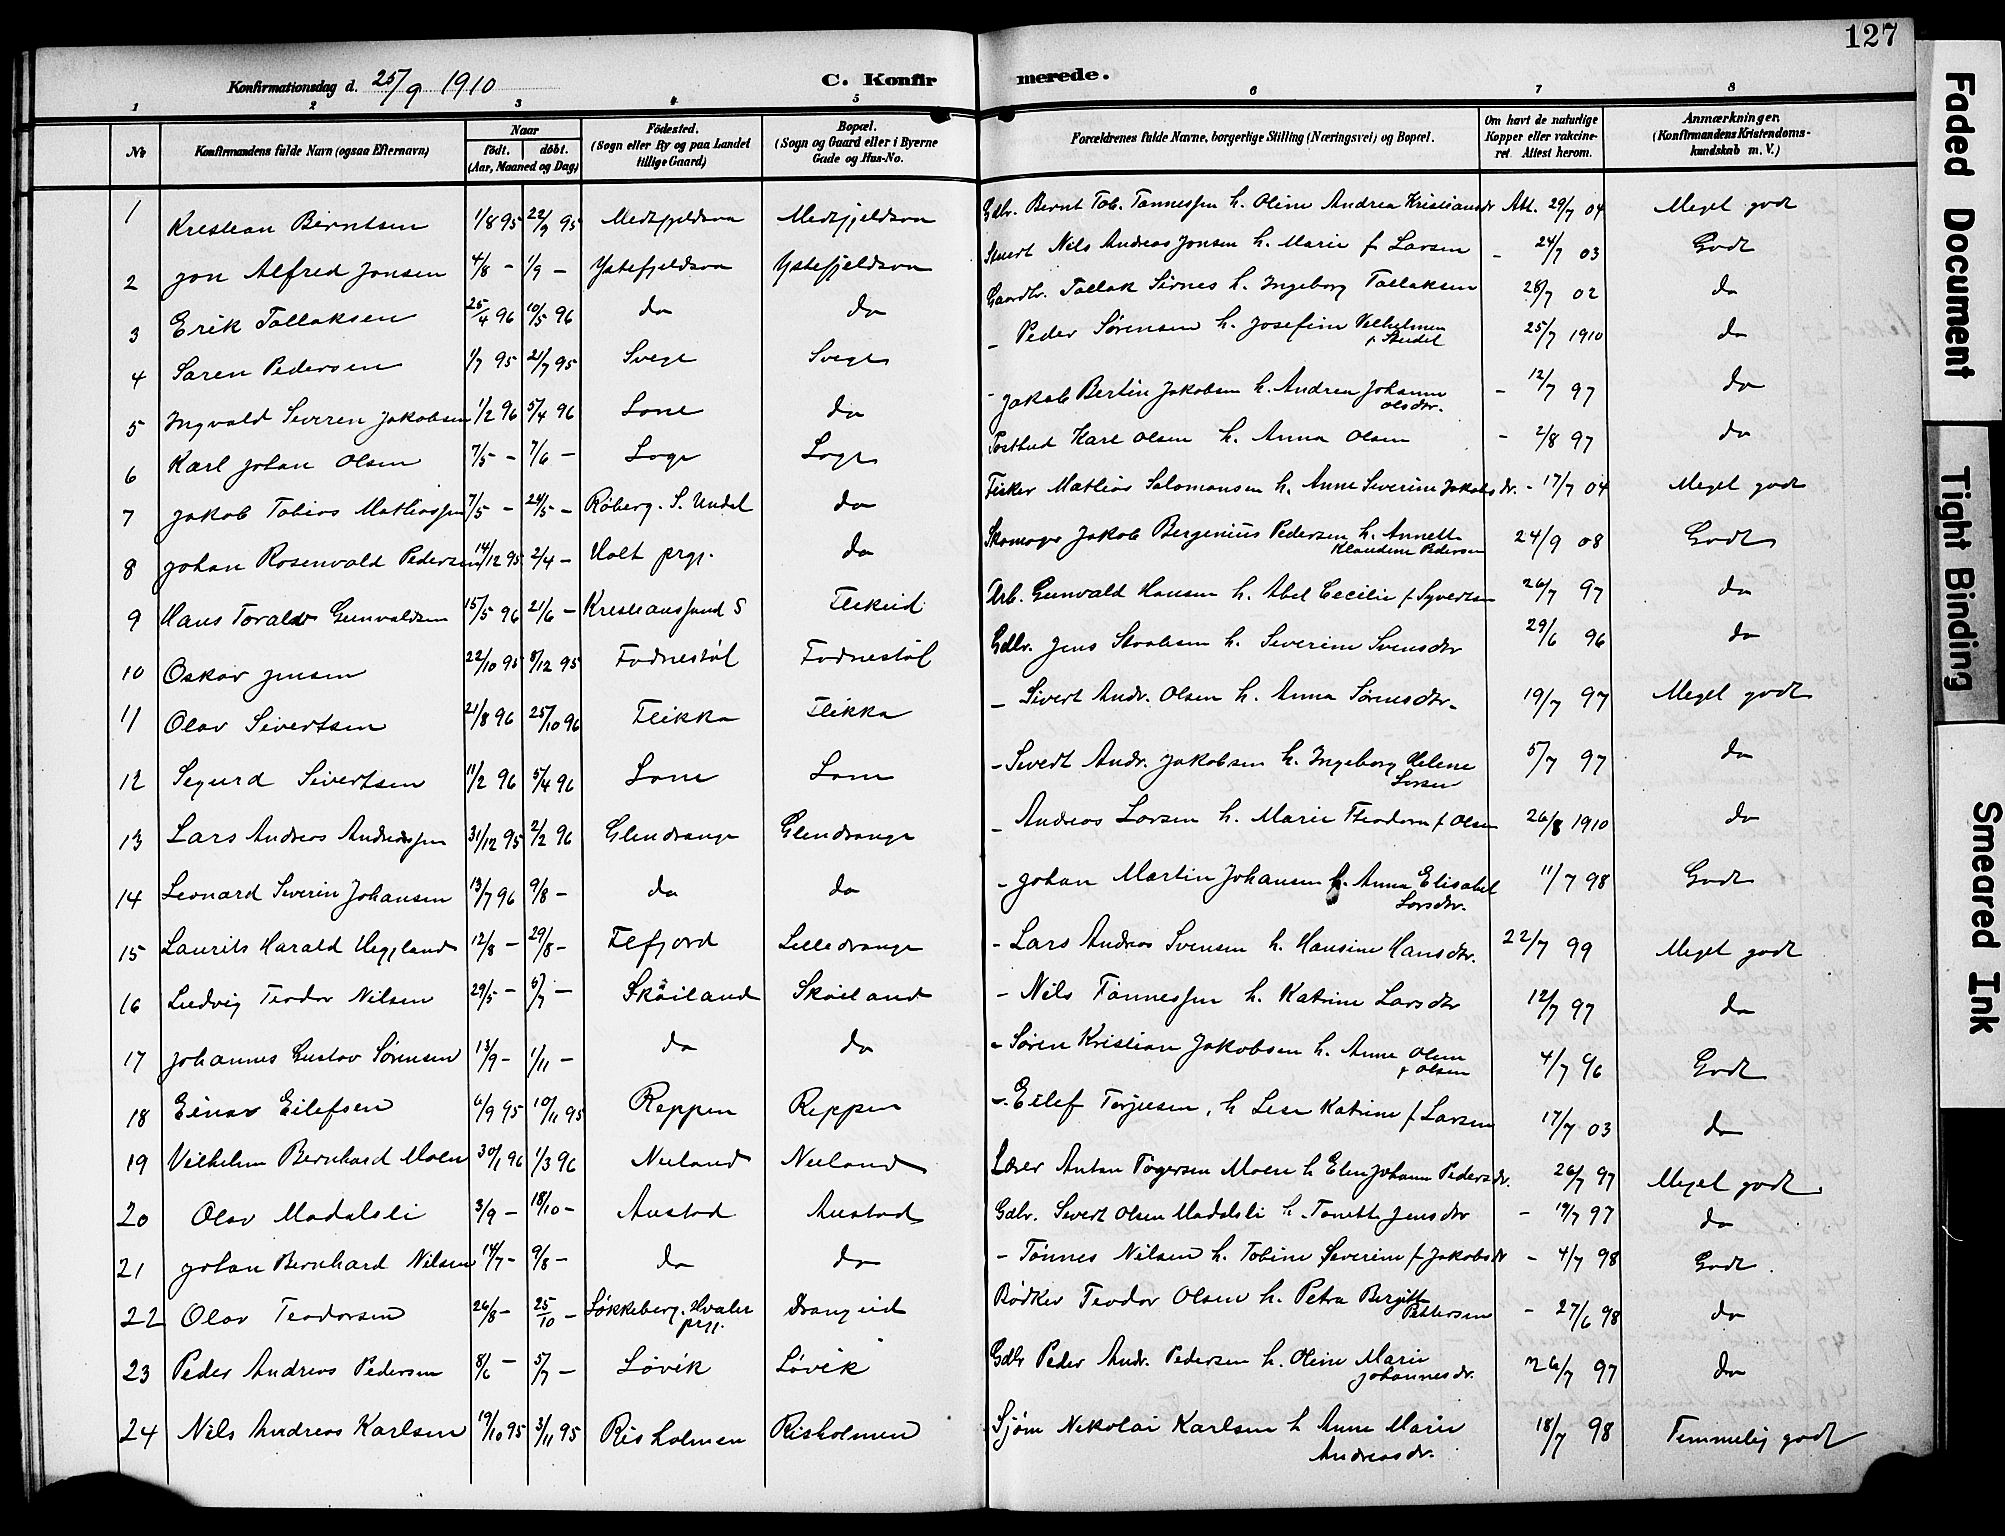 127
Konfirmationsdag d. 25/9 1910 C. Konfir merede.
1 2 3 4 5 6 7 8
No Konfirmandens fulde Navn (ogsaa Efternavn) Naar födt. döbt. (Aar, Maaned og Dag) Födested. (Sogn eller By og paa Landet tillige Gaard) Bopæl. (Sogn og Gaard eller i Byerne Gade og Hus-No. Forældrenes fulde Navne, borgerlige Stilling (Næringsvei) og Bopæl. Om havt de naturlige Kopper eller vakcineret. Attest herom. Anmærkninger. (Konfirmandens Kristendomskundskab m. V.)
1 Kristian Berntsen 1/8 95 22/9 95 Medfjeldsaa Medfjeldsaa Gdbr. Bernt Tob. Tønnessen h. Oline Andrea Kristiansdr Att. 29/7 04 Meget godt
2 Jon Alfred Jonsen 4/8 - 1/9 - Ystefjeldsaa Ystefjeldsaa Nils Andreas Jonsen h. Marie f. Larsen - 24/7 03 Godt
3 Erik Tollaksen 25/4 96 10/5 96 do do Gaardbr. Tollak Sirnes h. Ingeborg Tollaksen 28/7 02 do
4 Søren Pedersen 1/7 95 21/7 95 Svege Svege - Peder Sørensen h. Josefine Vilhelmine 25/7 1910 do
5 Ingvald Severin Jakobsen 1/2 96 5/4 96 Lone do - Jakob Bertin Jakobsen h. Andrea Johanne Olsdtr. - 12/7 97 do
6 Karl Johan Olsen 7/5 - 7/6 - Loge Loge Postbud Karl Olsen h. Anna Olsen - 2/8 97 do
7 Jakob Tobias Mathiassen 7/5 - 24/5 - Røberg. S. Undal do Fisker Mathias Salomonsen h. Anne Severine Jakobsdr. - 17/7 04 Meget godt
8 Johan Rosenvald Pedersen 14/12 95 2/4 - Holt prgj. do Skomager Jakob Bergenius Pedersen h. Annette Klaudine Pedersen 24/9 08 Godt
9 Hans Torald Gunvaldsen 15/5 96 21/6 - Kristianssund S Flikeid Arb. Gunvald Hansen h. Abel Cecilie f. Syvertsen 26/7 97 do
10 Oskar Jensen 22/10 95 8/12 95 Fodnestøl Fodnestøl Gdbr. Jens h. Severine Svensdtr 29/6 96 do
11 Olav Sivertsen 21/8 96 25/10 96 Flikka Flikka - Sivert Andr. Olsen h. Anna Sørensdtr. 19/7 97 Meget godt
12 Sigurd Sivertsen 11/2 96 5/4 96 Lone Lone - Sivert Andr. Jakobsen h. Ingeborg Helene Larsen 5/7 97 do
13 Lars Andreas Andreassen 31/12 95 2/2 96 Glendrange Glendrange - Andreas Larsen h. Marie Theodora f. Olsen 26/8 1910 do
14 Leonard Severin Johansen 13/7 96 9/8 - do do - Johan Martin Johansen h. Anna Elisabet Larsdtr. 11/7 98 Godt
15 Laurits Harald Heggland 12/8 - 29/8 - Flefjord Lilledrange - Lars Andreas Svensen h. Hansine Hansdtr. 22/7 99 Meget godt
16 Ludvig Teodor Nilsen 29/5 - 5/7 - Sköiland Sköiland - Nils Tønnessen h. Katrine Larsdtr 12/7 97 do
17 Johannes Gustav Sørensen 13/9 - 1/11 - do do - Søren Kristian Jakobsen h. Anne Oline f. Olsen 4/7 96 Godt
18 Einar Eilefsen 6/9 95 10/11 95 Reppen Reppen - Eilef Terjesen, h Lise Katrine f. Larsen 17/7 03 do
19 Vilhelm Bernhard Moen 30/1 96 1/3 96 Neeland Neeland Lærer Anton Togersen Moen h Elen Johanne Pedersdr. 26/7 97 Meget godt
20 Olav Madalsli 3/9 - 18/10 - Austad Austad Gdbr. Sivert Olsen Madalsli h. Tonette Jensdtr - 19/7 97 do
21 Johan Bernhard Nilsen 14/7 - 9/8 - do do - Tönnes Nilsen h. Tobine Severine f. Jakobsdr - 4/7 98 Godt.
22 Olav Teodorsen 26/8 - 25/10 - Løkkeberg. Hvaler prgj. Drangeid Bødker Teodor Olsen h. Petra Bergitte Pettersen - 27/6 98 do
23 Peder Andreas Pedersen 8/6 - 5/7 - Løvik Løvik Gdbr Peder Andr. Pedersen h. Oline Marie Johannesdr. 26/7 97 do
24 Nils Andreas Karlsen 19/10 95 3/11 95 Risholmen Risholmen Sjöm Nikolai Karlsen h Anne Marie Andreasdr. 18/7 98 Temmelig godt
Faded Document
Tight Binding
Smeared Ink